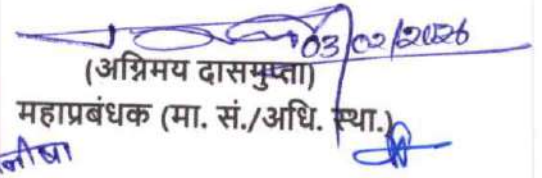 03/02/2026
(अग्निमय दासगुप्ता)
महाप्रबंधक (मा. सं./अधि. स्था.)